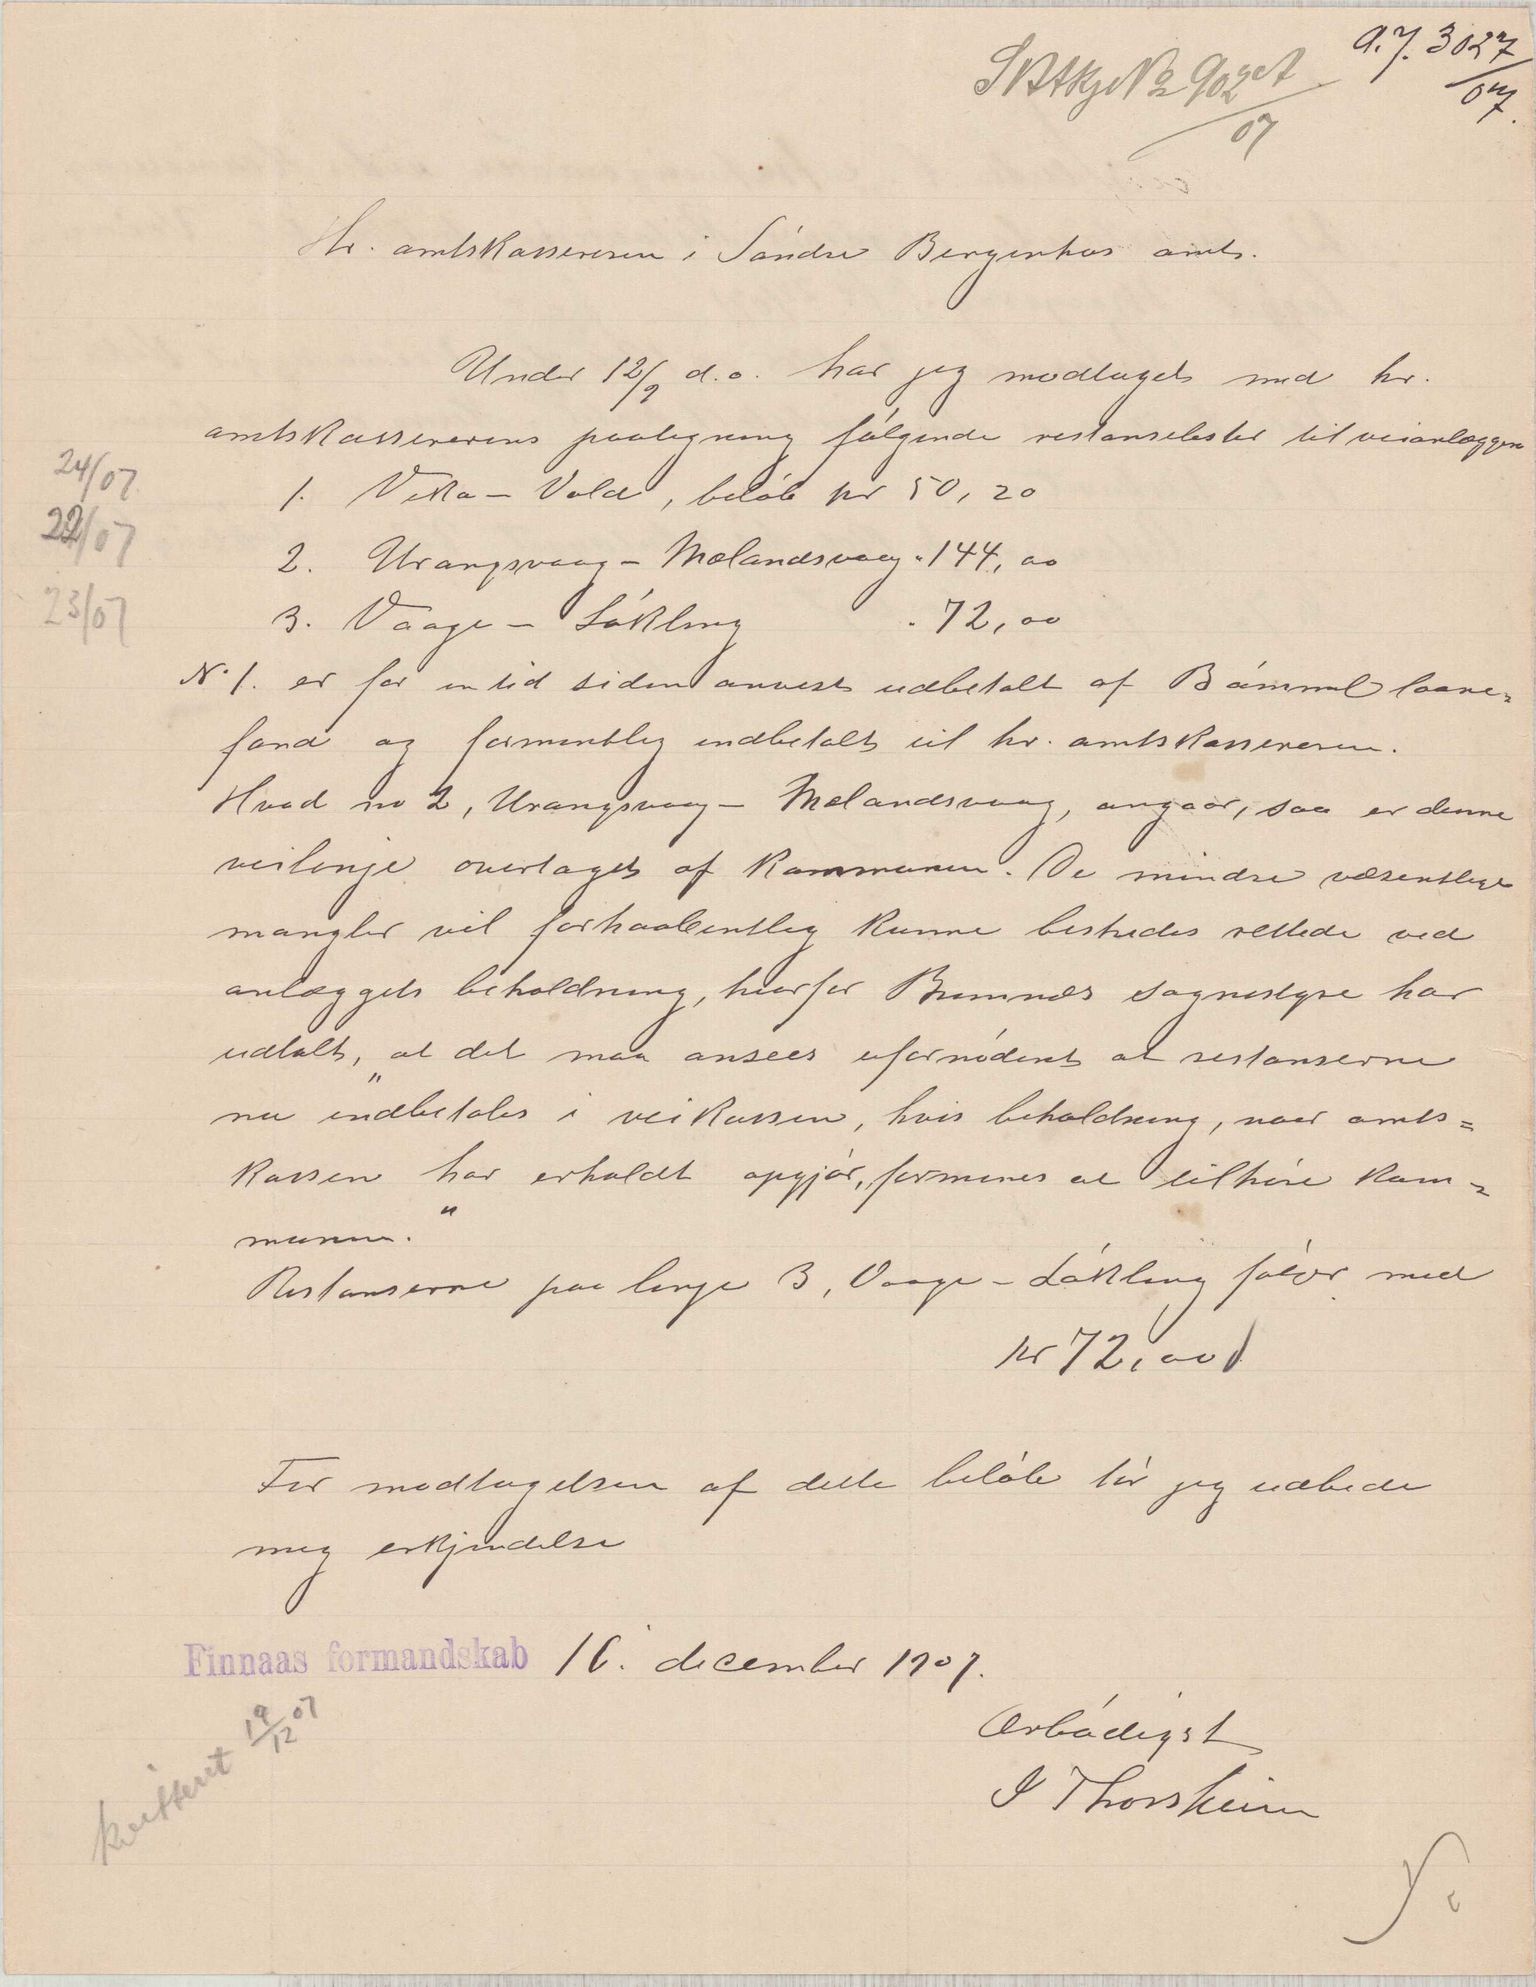 a.j. 3027/07.
902 07
Hr. amtskassereren i Söndre Bergenhus amt.
Under 12/9 d.a. har jeg modtaget med hr.
amtskassererens paategning fölgende restanselister til veianlæggene
24/07
1. Vika – Vold, belöb kr 50,20
22/07
2. Urangsvaag – Mælandsvaag " 144,00
23/07
3. Vaage – Lökling " 72,00
No 1. er for en tid siden anvist udbetalt af Bömmel laane=
fond og formentlig indbetalt til hr. amtskassereren.
Hvad no 2, Urangsvaag – Mælandsvaag, angaar, saa er denne
veilinje overtaget af kommunen. De mindre væsentlige
mangler vil forhaabentlig kunne bestrides rettede ved
anlæggets beholdning, hvorfor Bremnæs sognestyre har
udtalt, "at det maa ansees ufornödent at restanserne
nu indbetales i veikassen, hvis beholdning, naar amts=
kassen har erholdt opgjör, formenes at tilhöre kom=
munen."
Restanserne paa linje 3, Vaage – Lökling fölger med
kr 72,00
For modtagelsen af dette belöb tör jeg udbede
mig erkjendelse
Finnaas formandskab 16. december 1907.
Ærbödigst
I Thorsheim
kvitteret 19/12 07